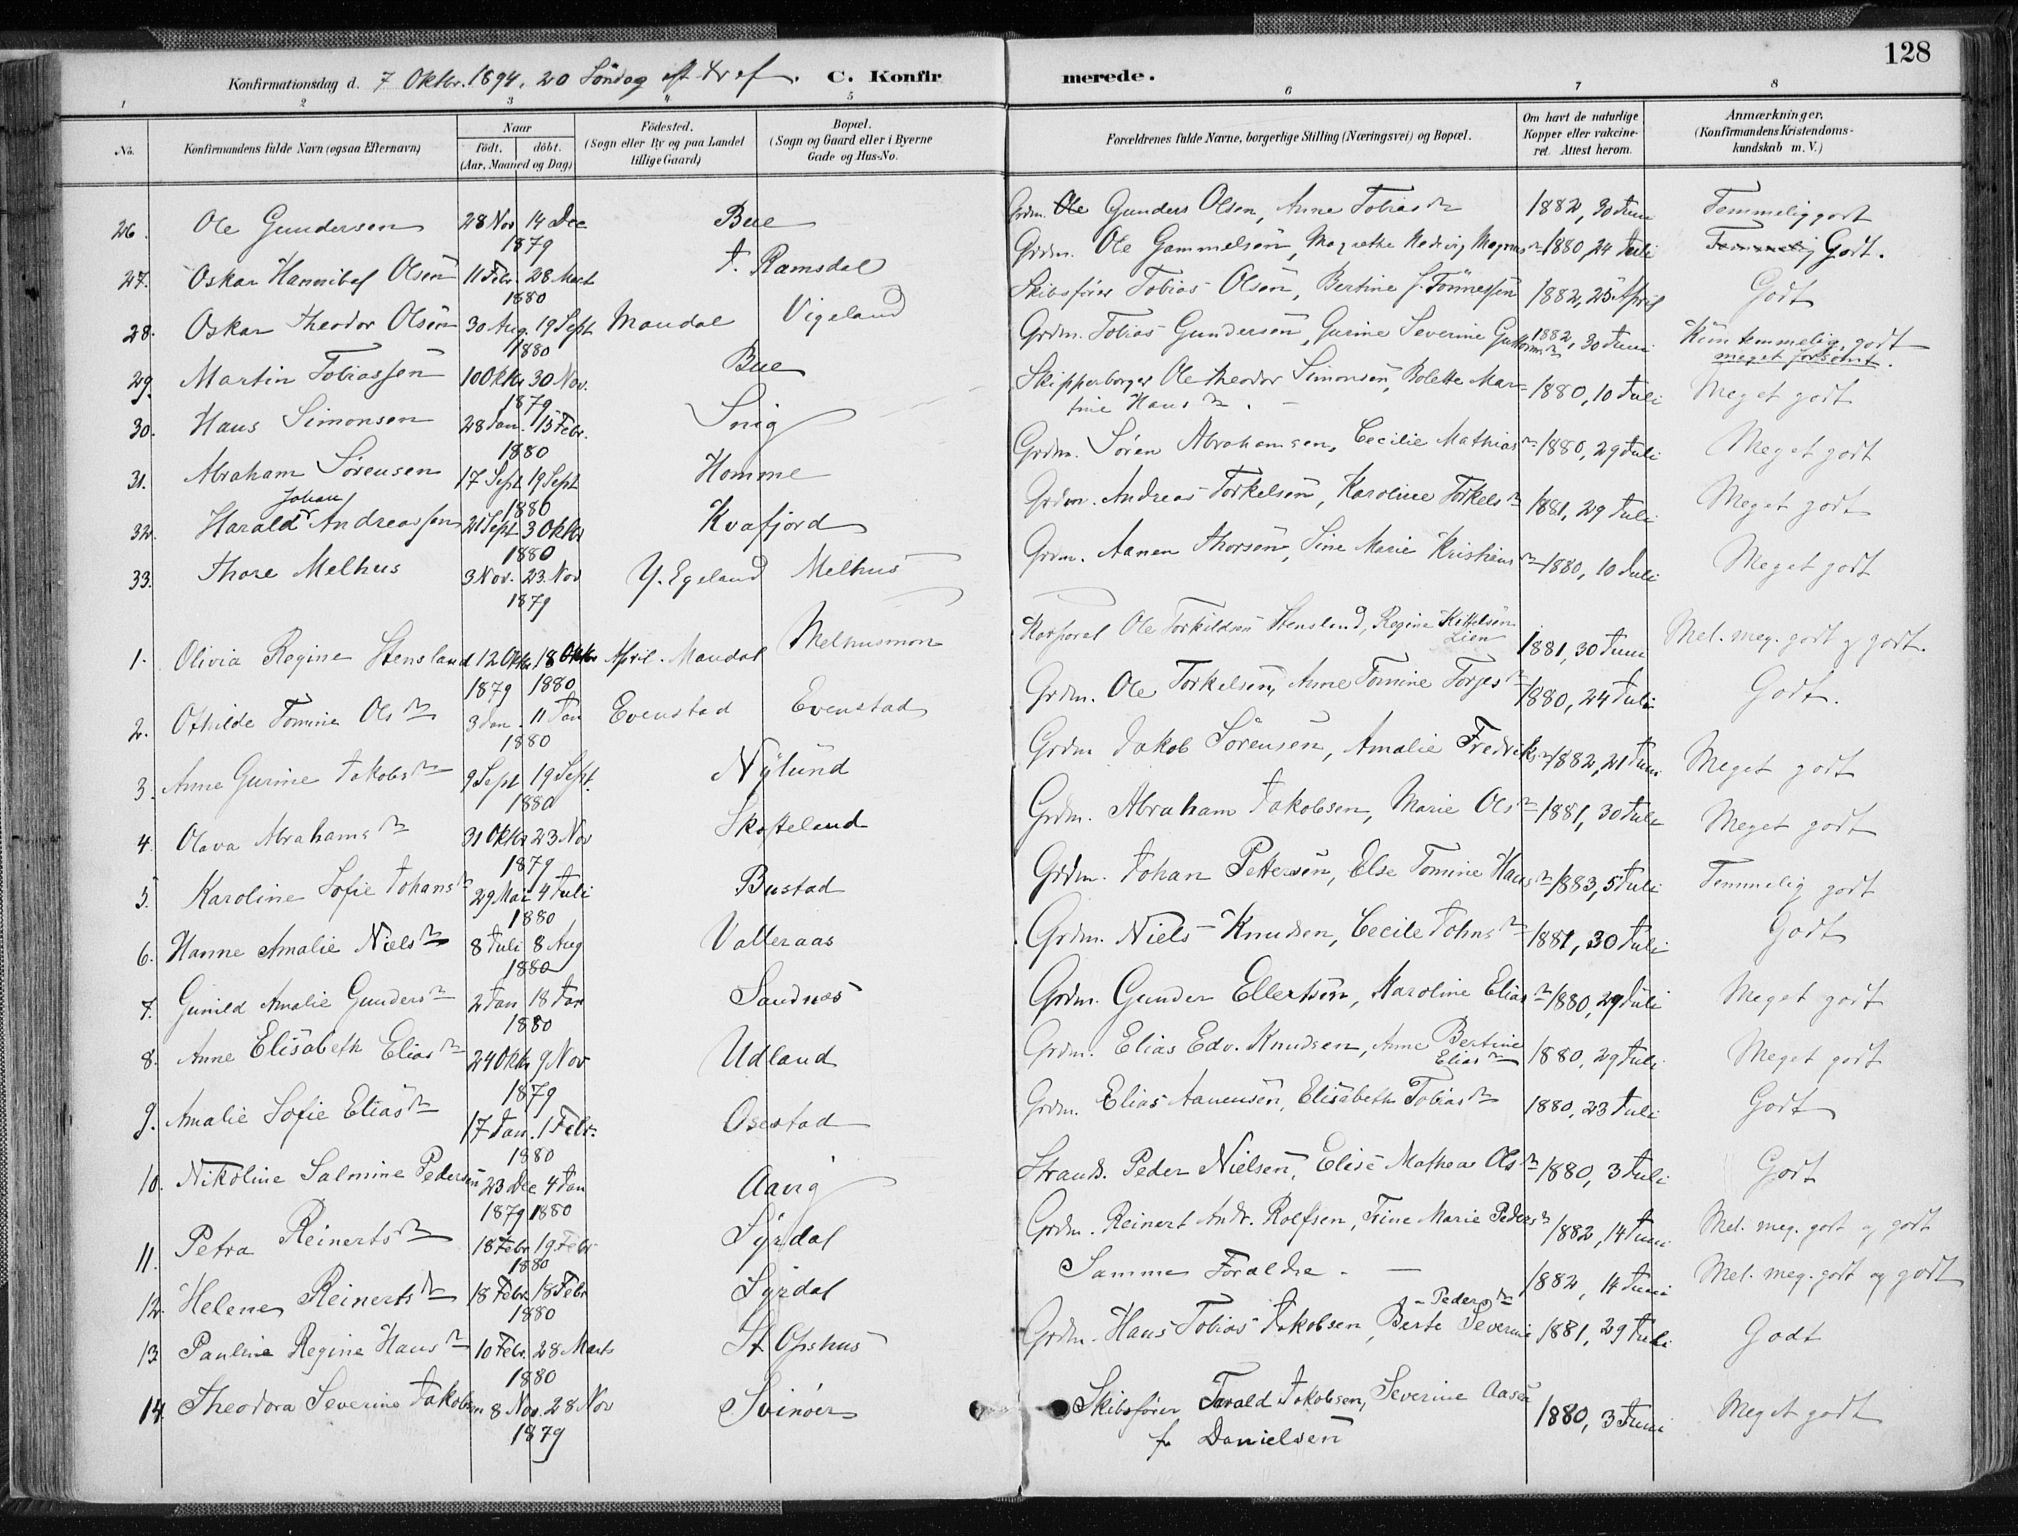 128
Konfirmationsdag d. 7 Oktbr. 1894, 20 Søndag eft tref. C. Konfirmerede.
1 2 3 4 5 6 7 8
No. Konfirmandens fulde Navn (ogsaa Efternavn) Naar født, døbt. (Aar, Maaned og Dag) Fødested. (Sogn eller By og paa Landet tillige Gaard) Bopæl. (Sogn og Gaard eller i Byerne Gade og Hus-No. Forældrenes fulde Navne, borgerlige Stilling (Næringsvei) og Bopæl. Om havt de naturlige Kopper eller vakcineret. Attest herom. Anmærkninger. (Konfirmandens Kristendomskundskab m. V.)
26. Ole Gundersen 28 Nov 14 Dec 1879 Bue Grdm. Ole Gunders Olsen, Anne Tobiasdr 1882, 30 Juni Temmelig godt
27. Oskar Hannibal Olsen 11 Febr. 28 Mart 1880 t. Ramsdal Grdm. Ole Gammelsen, Magrethe Hedvig Magnusdr 1880, 24 Juli Temmelig Godt.
28. Oskar Theodor Olsen 30 Aug. 19 Sept 1880 Mandal Vigeland Skibsfører Tobias Olsen, Bertine J. Tönnessen 1882, 25 April Godt
29. Martin Tobiassen 10 Oktr 30 Nov. 1879 Bue Grdm. Tobias Gundersen, Gurine Severine Guttormsdr 1882, 30 Juni Kun temmelig godt meget forsømt.
30. Hans Simonsen 28 Jan. 15 Febr. 1880 Snig Skipperborger Ole Theodor Simonsen, Bolette Martine Hansdr. 1880, 10 Juli Meget godt
31. Abraham Sørensen 17 Sept 19 Sept 1880 Homme Grdm. Søren Abrahamsen, Cecilie Mathiasdr 1880, 29 Juli Meget godt
32. Harald Johan Andreassen 21 Sept 3 Oktbr 1880 Kvafjord Grdm. Andreas Torkelsen, Karoline Torkelsdr 1881, 29 Juli Meget godt
33. Thore Melhus 3 Nov. 23 Nov 1879 Y. Egeland Melhus Grdm. Aanen Thorsen, Sine Marie Kristiansdr 1880, 10 Juli Meget godt
1. Olivia Regine Stensland 12 Oktr. 1879 18 Oktbr April. 1880 Mandal Melhusmon Korporal Ole Torkildsen Stensland, Regine Kittelsen Lien 1881, 30 Juni Mel. meg. godt og godt.
2. Othilde Tomine Olsdr 3 Jan. 11 Jan 1880 Evenstad Evenstad Grdm. Ole Torkelsen, Anne Tomine Torjesdr 1880, 24 Juli Godt.
3. Anne Gurine Jakobsdr 9 Sept 19 Sept. 1880 Nylund Grdm Jakob Sørensen, Amalie Fredriksdr 1882, 21 Juni Meget godt
4. Olava Abrahamsdr 31 Oktbr 23 Nov 1879 Skofteland Grdm. Abraham Jakobsen, Marie Olsdr 1881, 30 Juli Meget godt
5. Karoline Sofie Johansdr 29 Mai 4 Juli 1880 Bustad Grdm. Johan Pettersen, Else Tomine Hansdr 1883, 5 Juli Temmelig godt
6. Hanne Amalie Nielsdr 8 Juli 8 Aug 1880 Valleraas Grdm. Niels Knudsen, Cecile Johnsdr 1881, 30 Juli Godt
7. Gunild Amalie Gundersdr 2 Jan 18 Jan 1880 Sandnæs Grdm. Gunder Ellertsen, Karoline Eliasdr 1880, 29 Juli Meget godt
8. Anne Elisabeth Eliasdr 24 Oktr 9 Nov 1879 Udland Grdm. Elias Edv. Knudsen, Anne Bertine Eliasdr 1880, 29 Juli Meget godt
9. Amalie Sofie Eliasdr 17 Jan. 1 Febr. 1880 Osestad Grdm. Elias Aanensen, Elisabeth Tobiasdr 1880, 23 Juli Godt
10. Nikoline Salmine Pedersen 23 Dec 1879 4 Jan 1880 Aavig Strands. Peder Nielsen, Elise Mathea Olsdr 1880, 3 Juli Godt
11. Petra Reinertsdr 18 Febr 19 Febr 1880 Syrdal Grdm. Reinert Andr. Rolfsen, Trine Marie Pedersdr 1882, 14 Juni Mel. meg. godt og godt
12. Helene Reinertsdr 18 Febr. 18 Febr 1880 Syrdal Samme Forældre. — 1882, 14 Juni Mel. meg. godt og godt
13 Pauline Regine Hansdr 10 Febr. 28 Marts 1880 St Opshus Grdm. Hans Tobias Jakobsen, Berte Severine Pedersdr 1881, 29 Juli Godt
14. Theodora Severine Jakobsen 8 Nov. 28 Nov 1879 Svinøer Skibsfører Tarald Jakobsen, Severine Aase f. Danielsen 1880, 3 Juni Meget godt